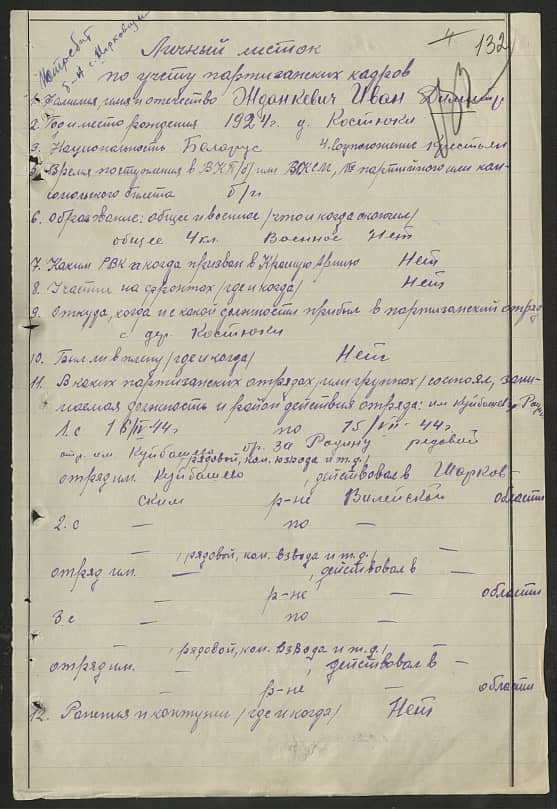 132
Личный листок
по учету партизанских кадров
1. Фамилия, имя и отечество Жданкевич Иван
2. Год и место рождения 1924 г. д. Костюки
3. Национальность Беларус 4. Соцположение Крестьян
5. Время поступления в ВКП/б/ или ВЛКСМ, № партийного или ком-
сомольского билета б/п
6. Образование: общее и военное /что и когда окончил/
общее 4 кл. Военное Нет
7. Каким РВК и когда призван в Красную Армию Нет
8. Участие на фронтах /где и когда/ Нет
9. Откуда, когда и с какой должности прибыл в партизанский отряд
с дер. Костюки
10. Был ли в плену /где и когда/ Нет
11. В каких партизанских отрядах /или группах/ состоял, зани-
маемая должность и район действия отряда: им Куйбышева За Родину
1. с по 15/VII-44 г.
отр. им. Куйбышева бр. За Родину рядовой
/рядовой, ком. взвода и т.д./
отряд им. Куйбышева, действовал в Шарков-
ским р-не Вилейской области
2. с — по —
/рядовой, ком. взвода и т.д./
отряд им. — , действовал в —
— р-не — области
3. с — по —
/рядовой, ком. взвода и т.д./
отряд им. — , действовал в —
— р-не — области
12. Ранения и контузии /где и когда/ Нет